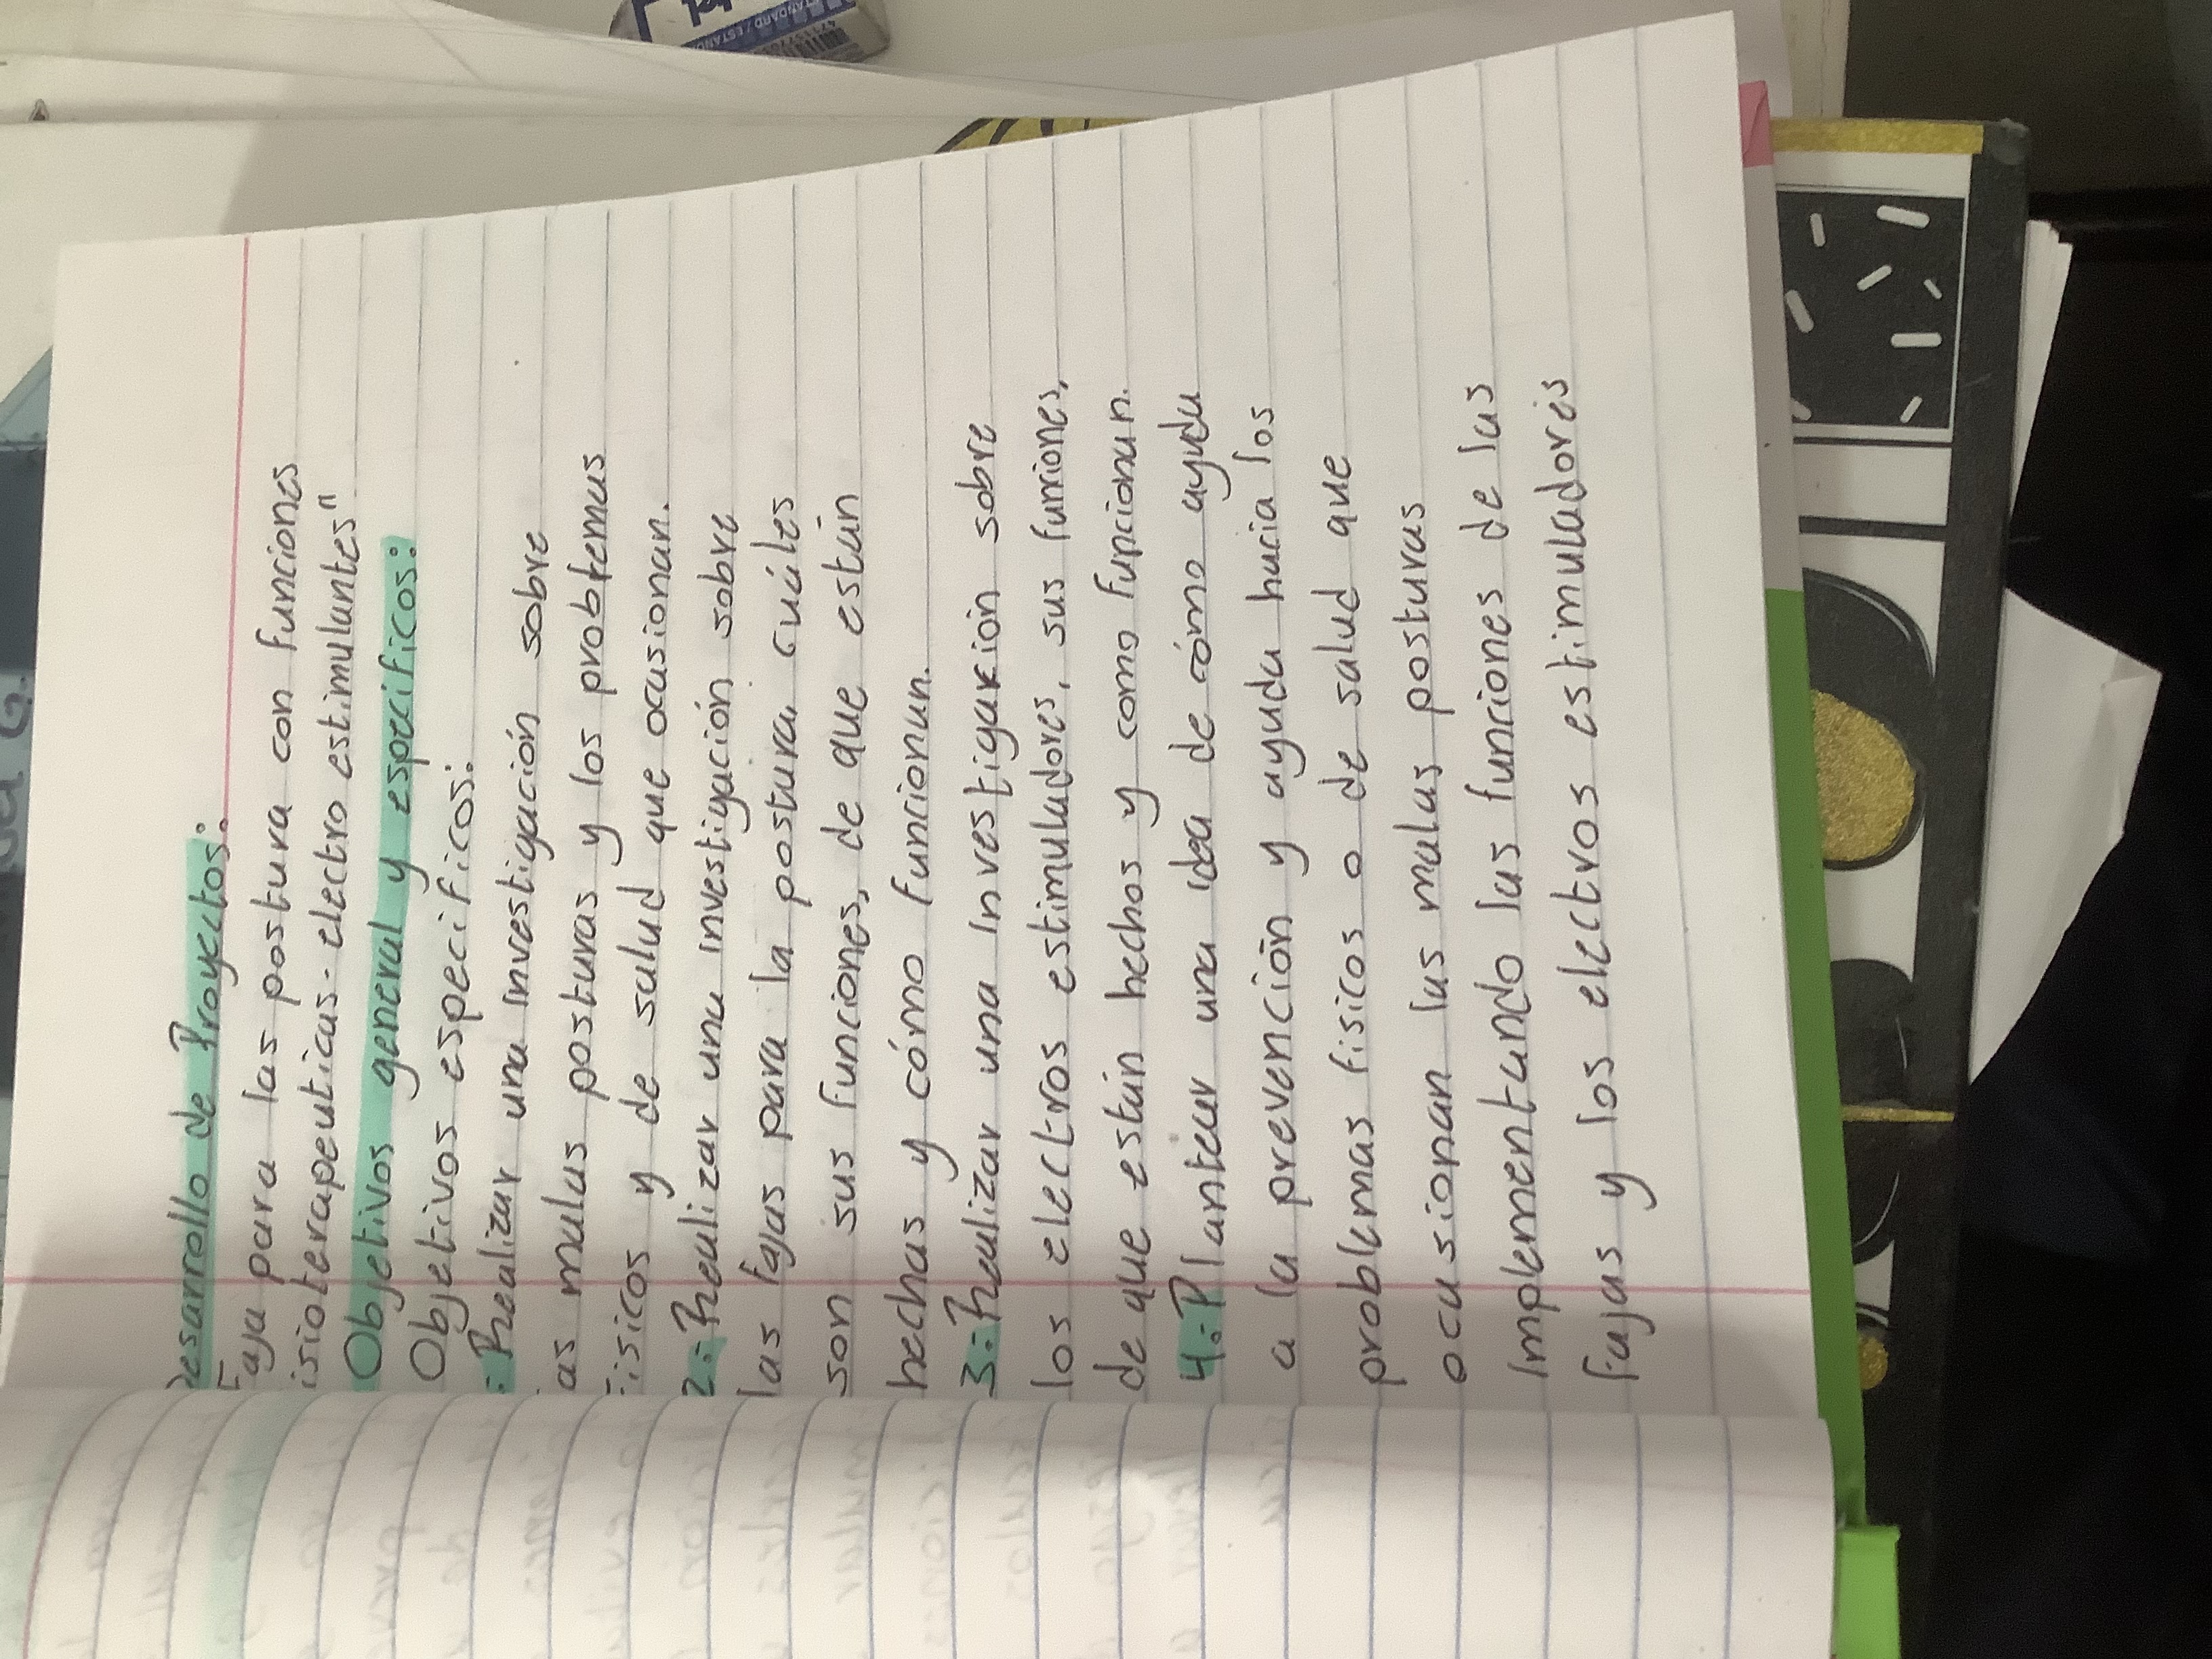 Desarrollo de Proyectos:
Faja para las postura con funciones
isioterapeuticas- electro estimulantes"
Objetivos general y especificos:
Objetivos especificos:
:Realizar una investigación sobre
as malas posturas y los problemas
fisicos y de salud que ocasionan.
2:-Realizar una investigación sobre
las fajas para la postura, cuáles
son sus funciones, de que están
hechas y cómo funcionan.
3:-Realizar una investigación sobre
los electros estimuladores, sus funciones,
de que están hechos y como funcionan.
4:-Plantear una idea de cómo ayuda
a la prevención y ayuda hacia los
problemas fisicos o de salud que
ocasionan las malas posturas
implementando las funciones de las
fajas y los electros estimuladores
STANDARD / ESTAND